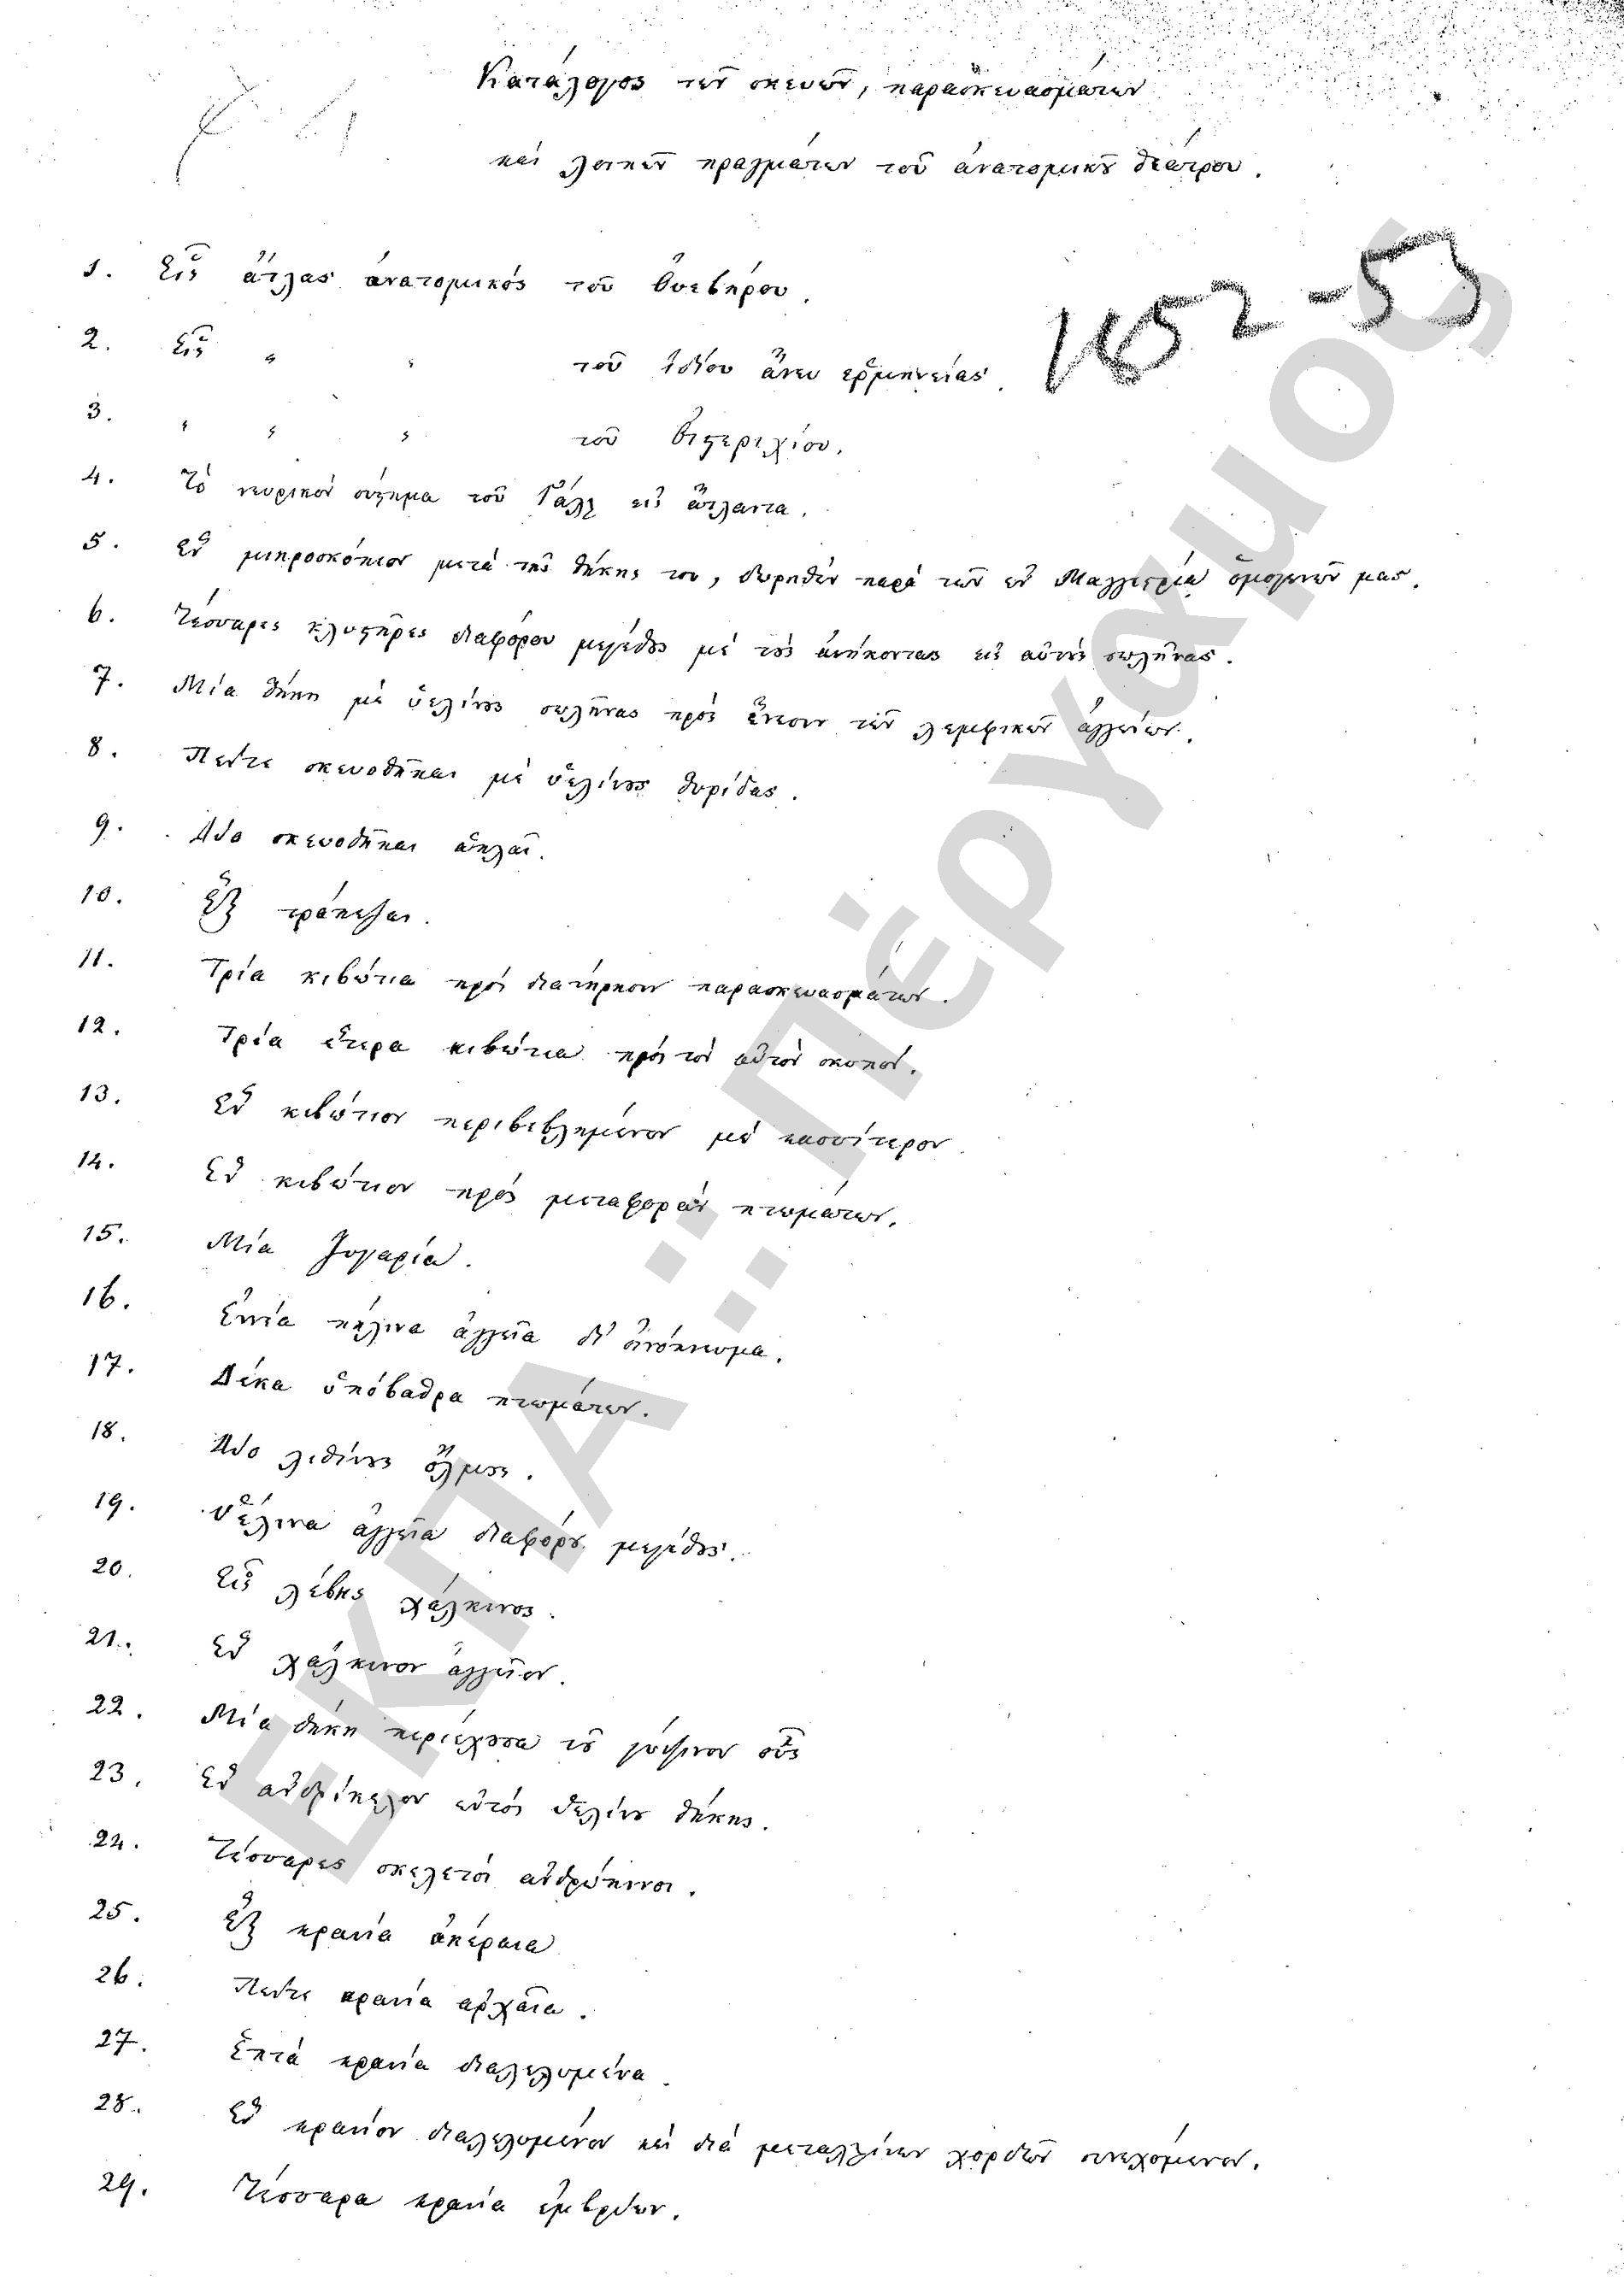 Κατάλογος τῶν σκευῶν, παρασκευασμάτων
καὶ λοιπῶν πραγμάτων τοῦ ἀνατομικοῦ θεάτρου.
1852-53
1. Εἷς ἄτλας ἀνατομικός τοῦ Οὐεβήρου.
2. Εἷς " " τοῦ ἰδίου ἄνευ ἑρμηνείας.
3. " " " τοῦ
4. Τὸ νευρικὸν σύστημα τοῦ Γάλλ εἰς ἄτλαντα.
5. Ἓν μικροσκόπιον μετὰ τῆς θήκης του, δωρηθὲν παρὰ τῶν ἐν Μαγχεστρίᾳ ὁμογενῶν μας.
6. Τέσσαρες κλυστῆρες διαφόρου μεγέθους μὲ τοὺς ἀνήκοντας εἰς αὐτοὺς σωλῆνας.
7. Μία θήκη μὲ ὑελίνους σωλῆνας πρὸς ἔνεσιν τῶν λεμφικῶν ἀγγείων.
8. Πέντε σκευοθῆκαι μὲ ὑελίνους θυρίδας.
9. Δύο σκευοθῆκαι ἁπλαῖ.
10. Ἓξ τράπεζαι.
11. Τρία κιβώτια πρὸς διατήρησιν παρασκευασμάτων.
12. Τρία ἕτερα κιβώτια πρὸς τὸν αὐτὸν σκοπόν.
13. Ἓν κιβώτιον περιβεβλημένον μὲ κασσίτερον
14. Ἓν κιβώτιον πρὸς μεταφορὰν πτωμάτων.
15. Μία ζυγαρία.
16. Ἐννέα πήλινα ἀγγεῖα δι'
17. Δέκα ὑπόβαθρα πτωμάτων.
18. Δύο λιθίνους ὅλμους.
19. Ὑέλινα ἀγγεῖα διαφόρου μεγέθους.
20. Εἷς λέβης χάλκινος.
21. Ἓν χάλκινον ἀγγεῖον.
22. Μία θήκη περιέχουσα τὸ γύψινον οὖς
23. Ἓν ἀνδρείκελον ἐντὸς ὑελίνου θήκης.
24. Τέσσαρες σκελετοὶ ἀνθρώπινοι.
25. Ἓξ κρανία ἀκέραια
26. Πέντε κρανία ἀρχαῖα.
27. Ἑπτὰ κρανία διαλελυμένα.
28. Ἓν κρανίον διαλελυμένον καὶ διὰ μεταλλίνων χορδῶν συνεχόμενον.
29. Τέσσαρα κρανία ἐμβρύων.
ΕΚΠΑ :: Πέργαμος